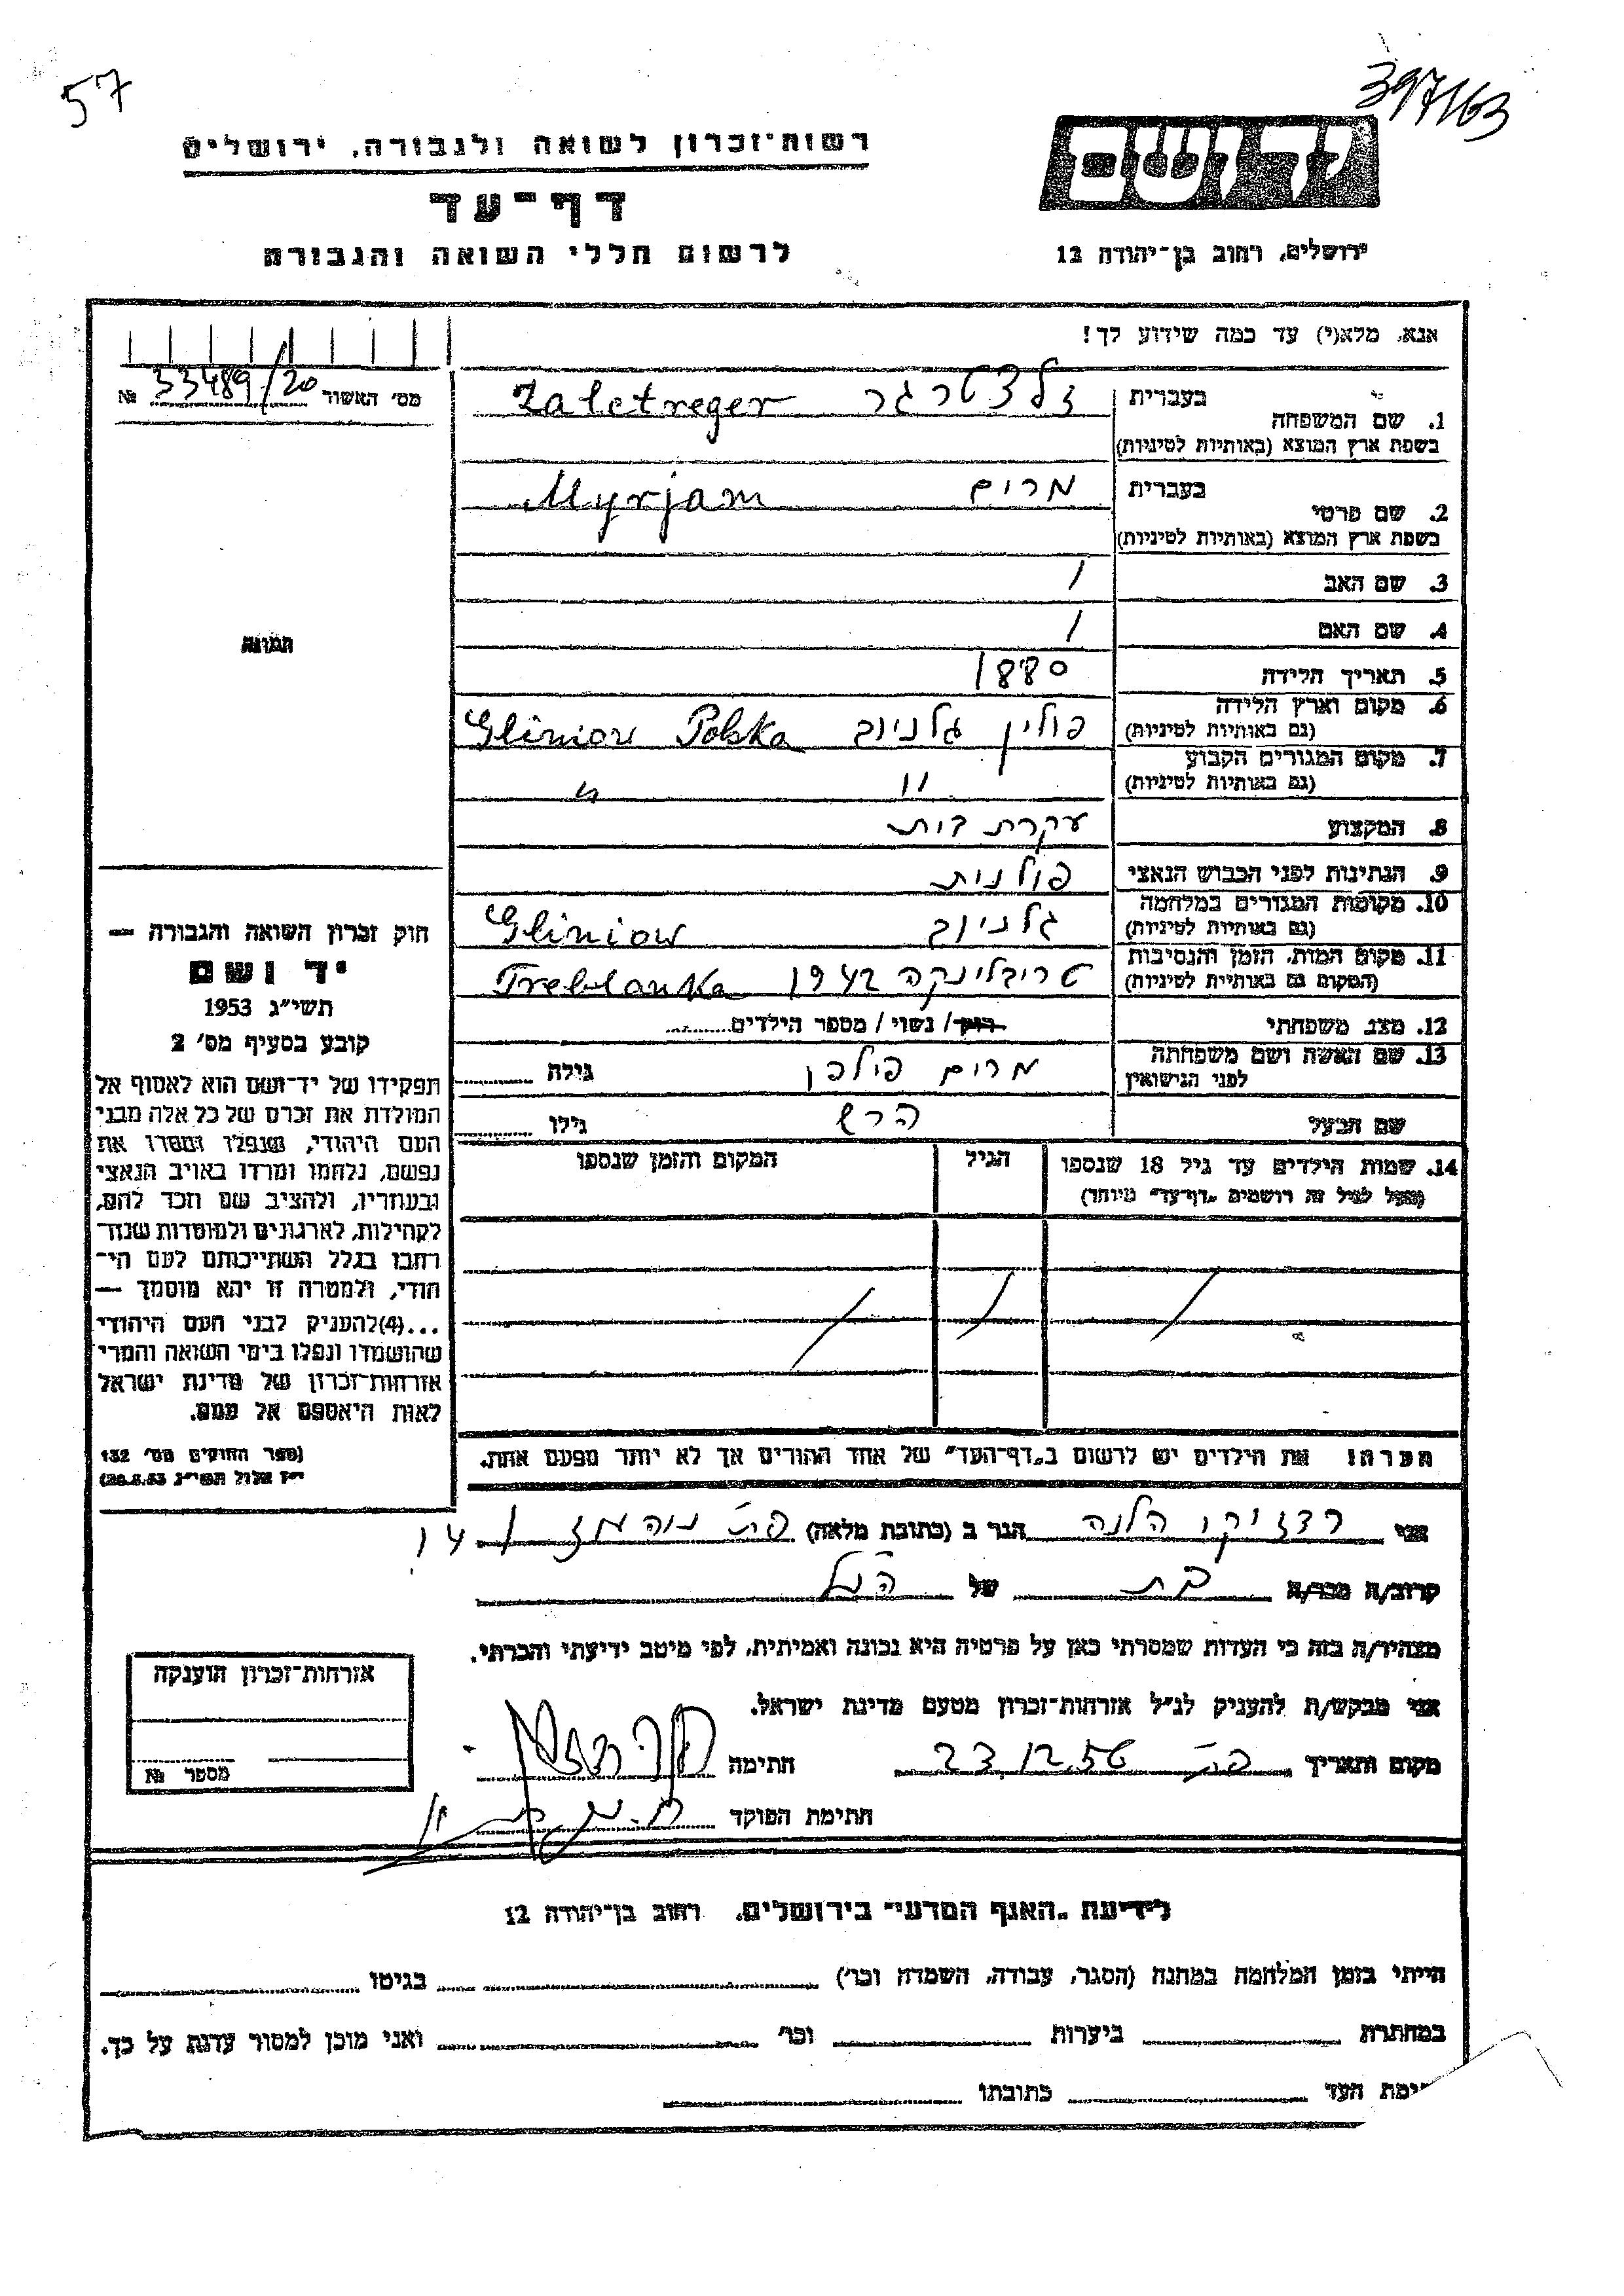 57
397/163
רשות־זכרון לשואה ולגבורה, ירושלים
דף־עד
לרשום חללי השואה והגבורה
יד ושם
ירושלים, רחוב בן־יהודה 12
אנא, מלא(י) עד כמה שידוע לך!
מס' האשור 33489/20 №
1. שם המשפחה בעברית זלצטרגר Zalctreger
בשפת ארץ המוצא (באותיות לטיניות)
2. שם פרטי בעברית מרים Myrjam
בשפת ארץ המוצא (באותיות לטיניות)
3. שם האב /
4. שם האם /
5. תאריך הלידה 1880
6. מקום וארץ הלידה פולין גלניוב Gliniow Polska
(גם באותיות לטיניות)
7. מקום המגורים הקבוע " "
(גם באותיות לטיניות)
8. המקצוע עקרת בית
9. הנתינות לפני הכבוש הנאצי פולנית
10. מקומות המגורים במלחמה גלניוב Gliniow
(גם באותיות לטיניות)
11. מקום המות, הזמן והנסיבות טריבלינקה 1942 Treblanka
(המקום גם באותיות לטיניות)
12. מצב משפחתי רווק / נשוי / מספר הילדים
13. שם האשה ושם משפחתה מרים פילכן גילה
לפני הנישואין
שם הבעל הרש גילו
14. שמות הילדים עד גיל 18 שנספו הגיל המקום והזמן שנספו
(מעל לגיל זה רושמים "דף־עד" מיוחד)
/ / /
הערה: את הילדים יש לרשום ב"דף־העד" של אחד ההורים אך לא יותר מפעם אחת.
התמונה
חוק זכרון השואה והגבורה —
יד ושם
תשי״ג 1953
קובע בסעיף מס' 2
תפקידו של יד־ושם הוא לאסוף אל
המולדת את זכרם של כל אלה מבני
העם היהודי, שנפלו ומסרו את
נפשם, נלחמו ומרדו באויב הנאצי
ובעוזריו, ולהציב שם וזכר להם,
לקהילות, לארגונים ולמוסדות שנח־
רבו בגלל השתייכותם לעם הי־
הודי, ולמטרה זו יהא מוסמך —
...(4)להעניק לבני העם היהודי
שהושמדו ונפלו בימי השואה והמרי
אזרחות־זכרון של מדינת ישראל
לאות היאספם אל עמם.
(ספר החוקים מס' 132
י״ז אלול תשי״ג 28.8.53)
אני רדזיקי הלנה הגר ב (כתובת מלאה)
קרוב/ה מכר/ה בת של הנ״ל
מצהיר/ה בזה כי העדות שמסרתי כאן על פרטיה היא נכונה ואמיתית, לפי מיטב ידיעתי והכרתי.
אני מבקש/ת להעניק לנ״ל אזרחות־זכרון מטעם מדינת ישראל.
מקום ותאריך 23.12.56 חתימה
חתימת הפוקד
אזרחות־זכרון הוענקה
מספר №
לידיעת "האגף המדעי" בירושלים, רחוב בן־יהודה 12
הייתי בזמן המלחמה במחנה (הסגר, עבודה, השמדה וכו') בגיטו
במחתרת ביערות וכו' ואני מוכן למסור עדות על כך.
חתימת העד כתובתו